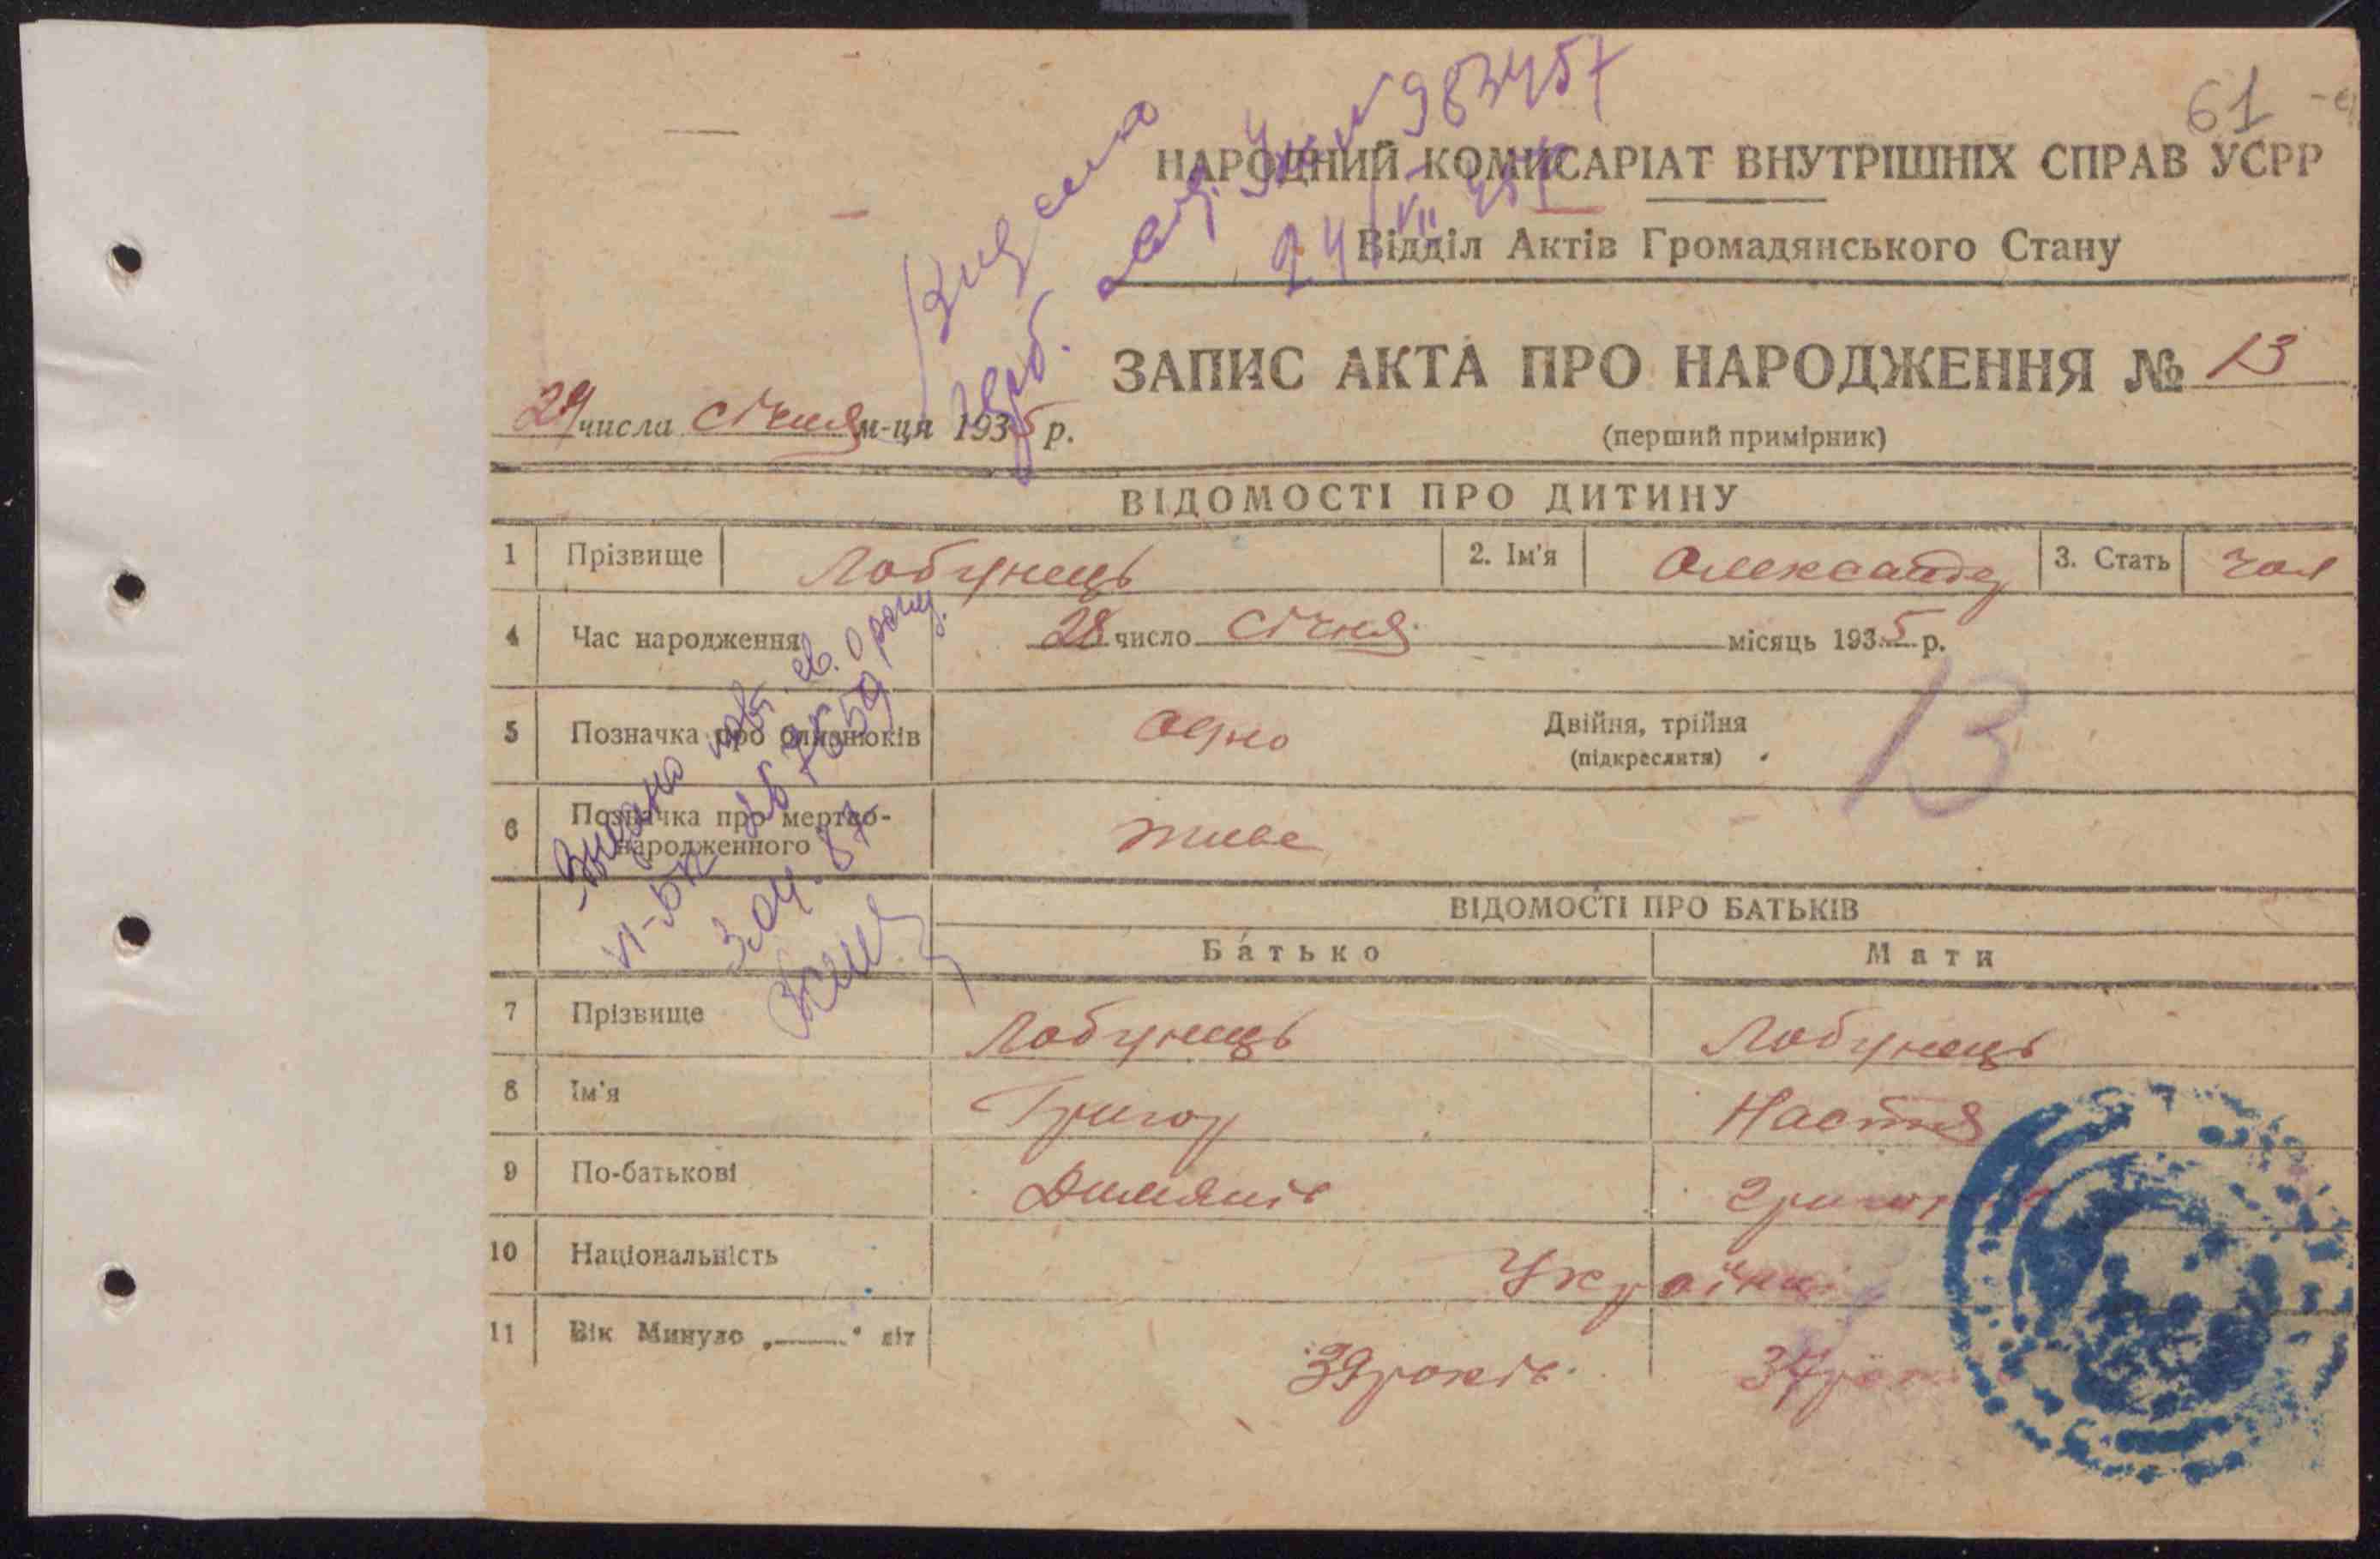 61
НАРОДНИЙ КОМИСАРІАТ ВНУТРІШНІХ СПРАВ УСРР
Відділ Актів Громадянського Стану
ЗАПИС АКТА ПРО НАРОДЖЕННЯ № 13
29 числа січня м-ця 1935 р.
(перший примірник)
ВІДОМОСТІ ПРО ДИТИНУ
1 Прізвище Лобунець 2. Ім'я Олександр 3. Стать чол
4 Час народження 28 число січня місяць 1935 р.
5 Позначка про близнюків одно Двійня, трійня
(підкреслити)
13
6 Позначка про мертво-
народженного живе
ВІДОМОСТІ ПРО БАТЬКІВ
Батько Мати
7 Прізвище Лобунець Лобунець
8 Ім'я Григор Настя
9 По-батькові Димянів
10 Національність Українці
11 Вік Минуло „ “ літ 39 років.
983457
3.04.87